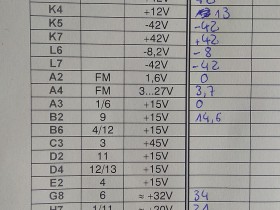 K4 +12V 13
K5 -42V -42
K7 +42V +42
L6 -8,2V -8
L7 -42V -42
A2 FM 1,6V 0
A4 FM 3...27V 3,7
A3 1/6 +15V 0
B2 9 +15V 14,6
B6 4/12 +15V
C3 3 +45V
D2 11 +15V
D4 12/13 +15V
E2 4 +15V
G8 6 ≈ +32V 34
H7 1/11